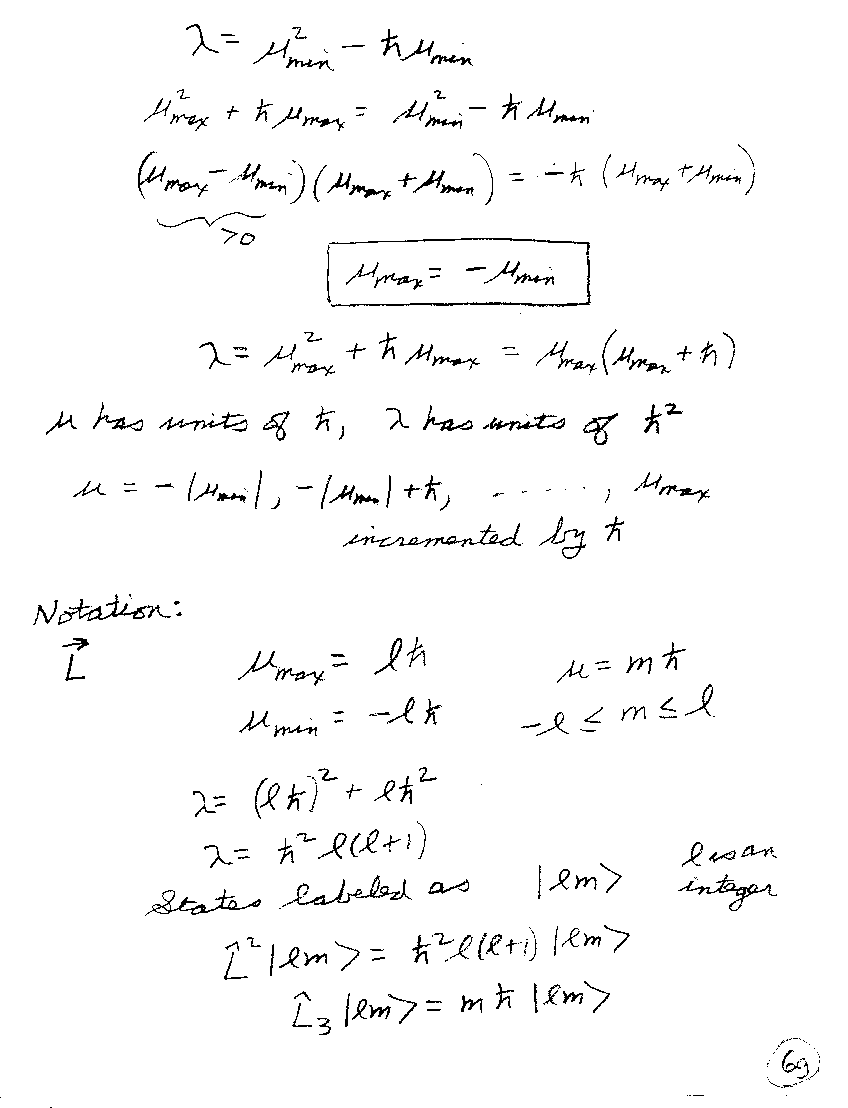 λ = μ²min − ħμmin
μ²max + ħμmax = μ²min − ħμmin
(μmax − μmin)(μmax + μmin) = −ħ(μmax + μmin)
>0
μmax = −μmin
λ = μ²max + ħμmax = μmax(μmax + ħ)
μ has units of ħ, λ has units of ħ²
μ = −|μmin|, −|μmin| + ħ, ......, μmax
incremented by ħ
Notation:
L⃗ μmax = lħ μ = mħ
μmin = −lħ −l ≤ m ≤ l
λ = (lħ)² + lħ²
λ = ħ² l(l+1)
States labeled as |lm> l is an integer
L̂²|lm> = ħ² l(l+1)|lm>
L̂₃|lm> = mħ|lm>
69